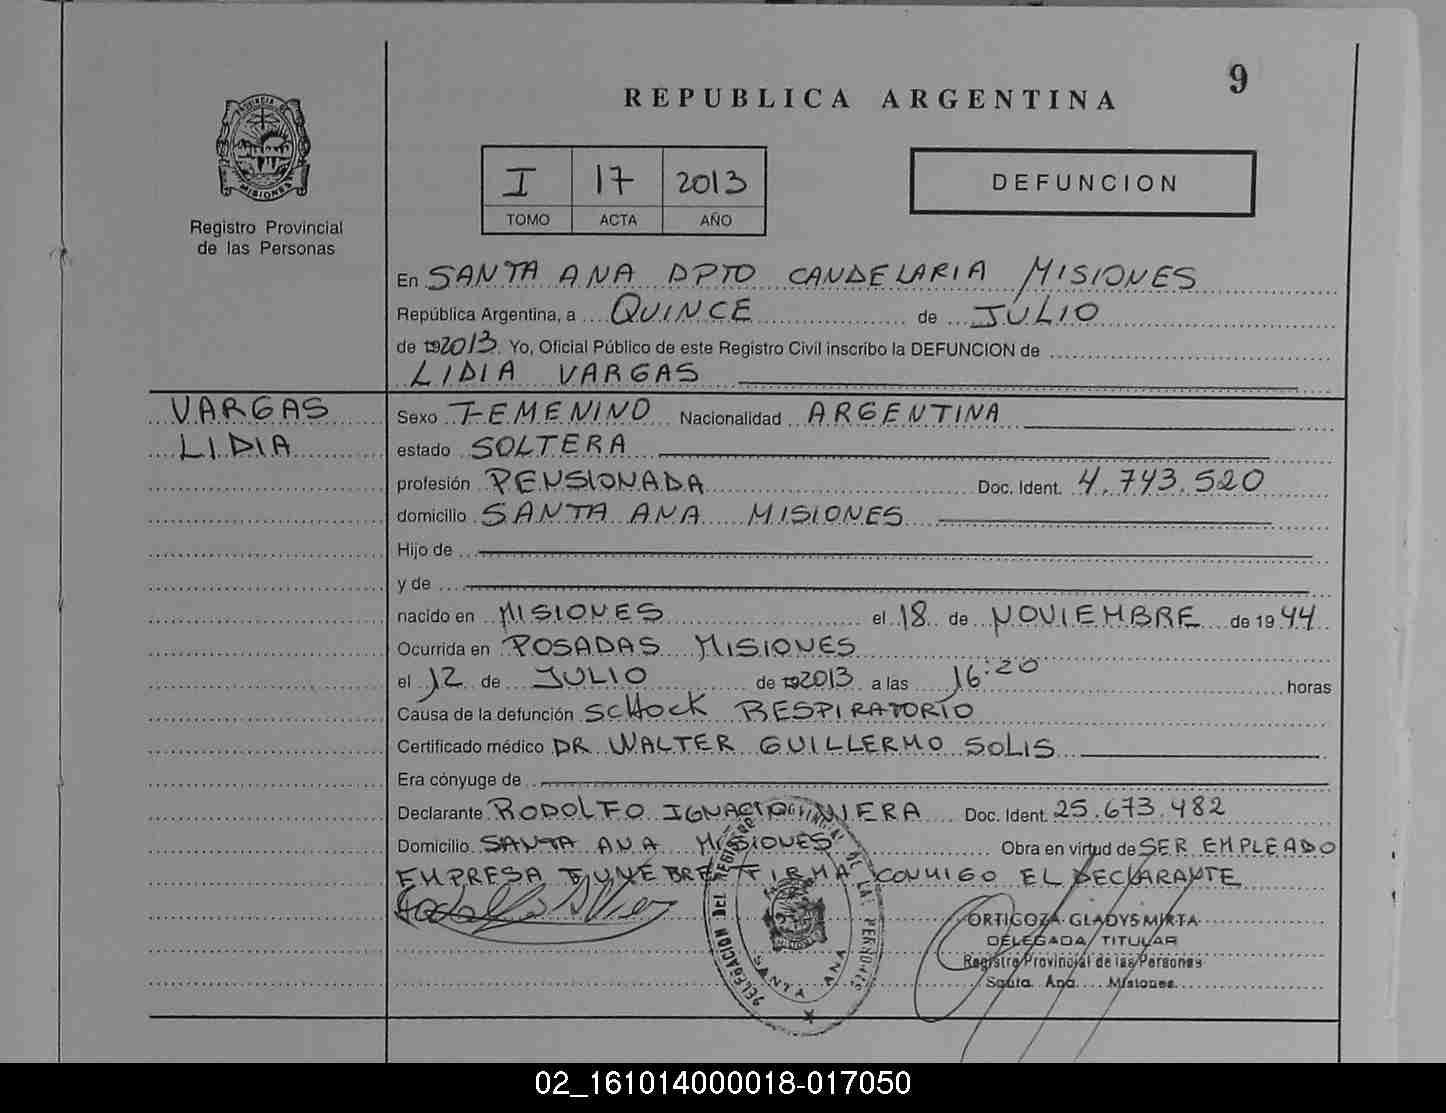 9
REPUBLICA ARGENTINA
PROVINCIA DE
MISIONES
Registro Provincial
de las Personas
I 17 2013
TOMO ACTA AÑO
DEFUNCION
En SANTA ANA DPTO CANDELARIA MISIONES
República Argentina, a QUINCE de JULIO
de 2013. Yo, Oficial Público de este Registro Civil inscribo la DEFUNCION de
LIDIA VARGAS
VARGAS
LIDIA
Sexo FEMENINO Nacionalidad ARGENTINA
estado SOLTERA
profesión PENSIONADA Doc. Ident. 4.743.520
domicilio SANTA ANA MISIONES
Hijo de
y de
nacido en MISIONES el 18 de NOVIEMBRE de 1944
Ocurrida en POSADAS MISIONES
el 12 de JULIO de 2013 a las 16:20 horas
Causa de la defunción SCHOCK RESPIRATORIO
Certificado médico DR WALTER GUILLERMO SOLIS
Era cónyuge de
Declarante RODOLFO IGNACIO NIERA Doc. Ident. 25.673.482
Domicilio SANTA ANA MISIONES Obra en virtud de SER EMPLEADO
EMPRESA FUNEBRE FIRMA CONMIGO EL DECLARANTE
DELEGACION DEL REGISTRO PROVINCIAL DE LAS PERSONAS
SANTA ANA
ORTIGOZA GLADYS MIRTA
DELEGADA TITULAR
Registro Provincial de las Personas
Santa Ana Misiones
02_161014000018-017050